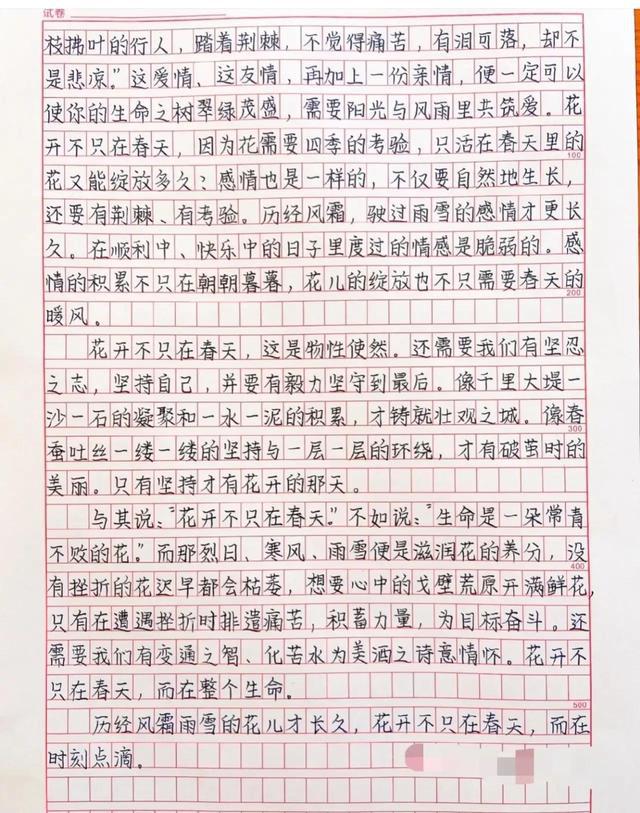 试卷
枝拂叶的行人，踏着荆棘，不觉得痛苦，有泪可落，却不
是悲凉。”这爱情、这友情，再加上一份亲情，便一定可以
使你的生命之树翠绿茂盛，需要阳光与风雨里共筑爱。花
开不只在春天，因为花需要四季的考验，只活在春天里的
100
花又能绽放多久？感情也是一样的，不仅要自然地生长，
还要有荆棘、有考验。历经风霜，驶过雨雪的感情才更长
久。在顺利中、快乐中的日子里度过的情感是脆弱的。感
情的积累不只在朝朝暮暮，花儿的绽放也不只需要春天的
200
暖风。
花开不只在春天，这是物性使然。还需要我们有坚忍
之志，坚持自己，并要有毅力坚守到最后。像千里大堤一
沙一石的凝聚和一水一泥的积累，才铸就壮观之城。像春
300
蚕吐丝一缕一缕的坚持与一层一层的环绕，才有破茧时的
美丽。只有坚持才有花开的那天。
与其说：“花开不只在春天。”不如说：“生命是一朵常青
不败的花。”而那烈日、寒风、雨雪便是滋润花的养分，没
400
有挫折的花迟早都会枯萎，想要心中的戈壁荒原开满鲜花，
只有在遭遇挫折时排遣痛苦，积蓄力量，为目标奋斗。还
需要我们有变通之智、化苦水为美酒之诗意情怀。花开不
只在春天，而在整个生命。
500
历经风霜雨雪的花儿才长久，花开不只在春天，而在
时刻点滴。